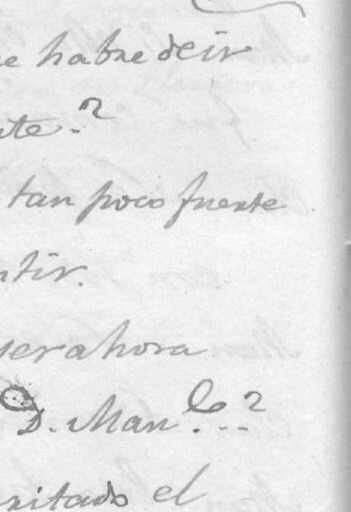 e habre de ir
nte.?
tan poco fuerte
ntir.
ser ahora
D. Man.l...?
xitado el